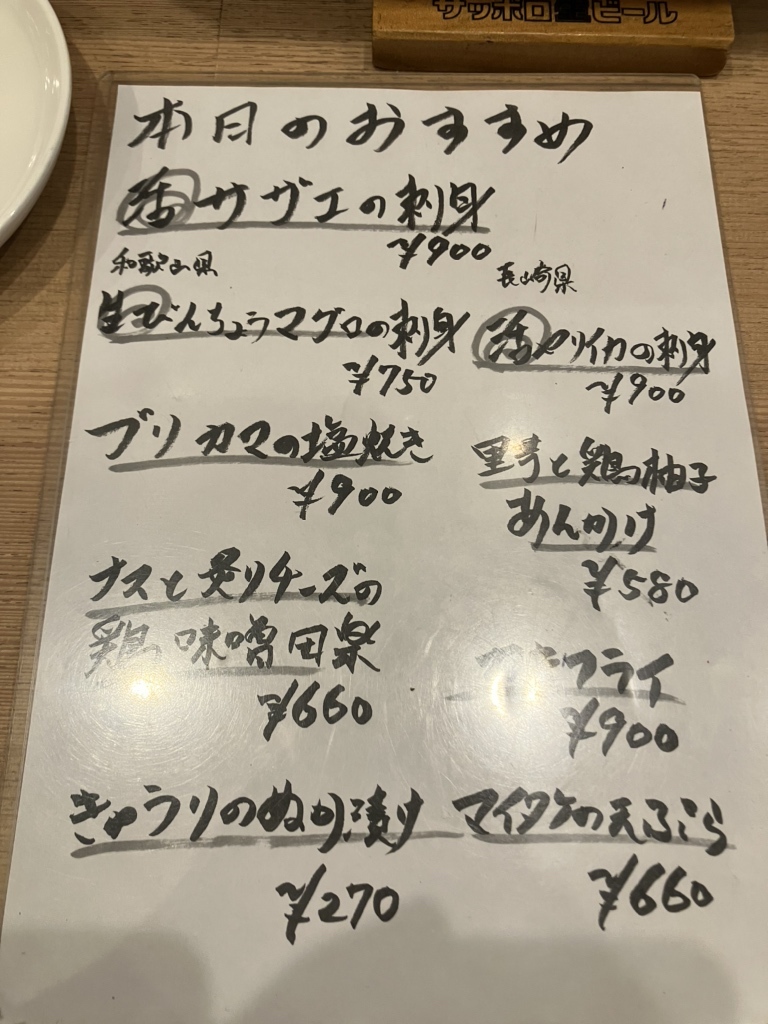 サッポロ生ビール
本日のおすすめ
活サザエの刺身
¥900
和歌山県
生びんちょうマグロの刺身
¥750
長崎県
活ヤリイカの刺身
¥900
ブリカマの塩焼き
¥900
里芋と鶏柚子
あんかけ
¥580
ナスと炙りチーズの
鶏味噌田楽
¥660
フライ
¥900
きゅうりのぬか漬け
¥270
マイタケの天ぷら
¥660